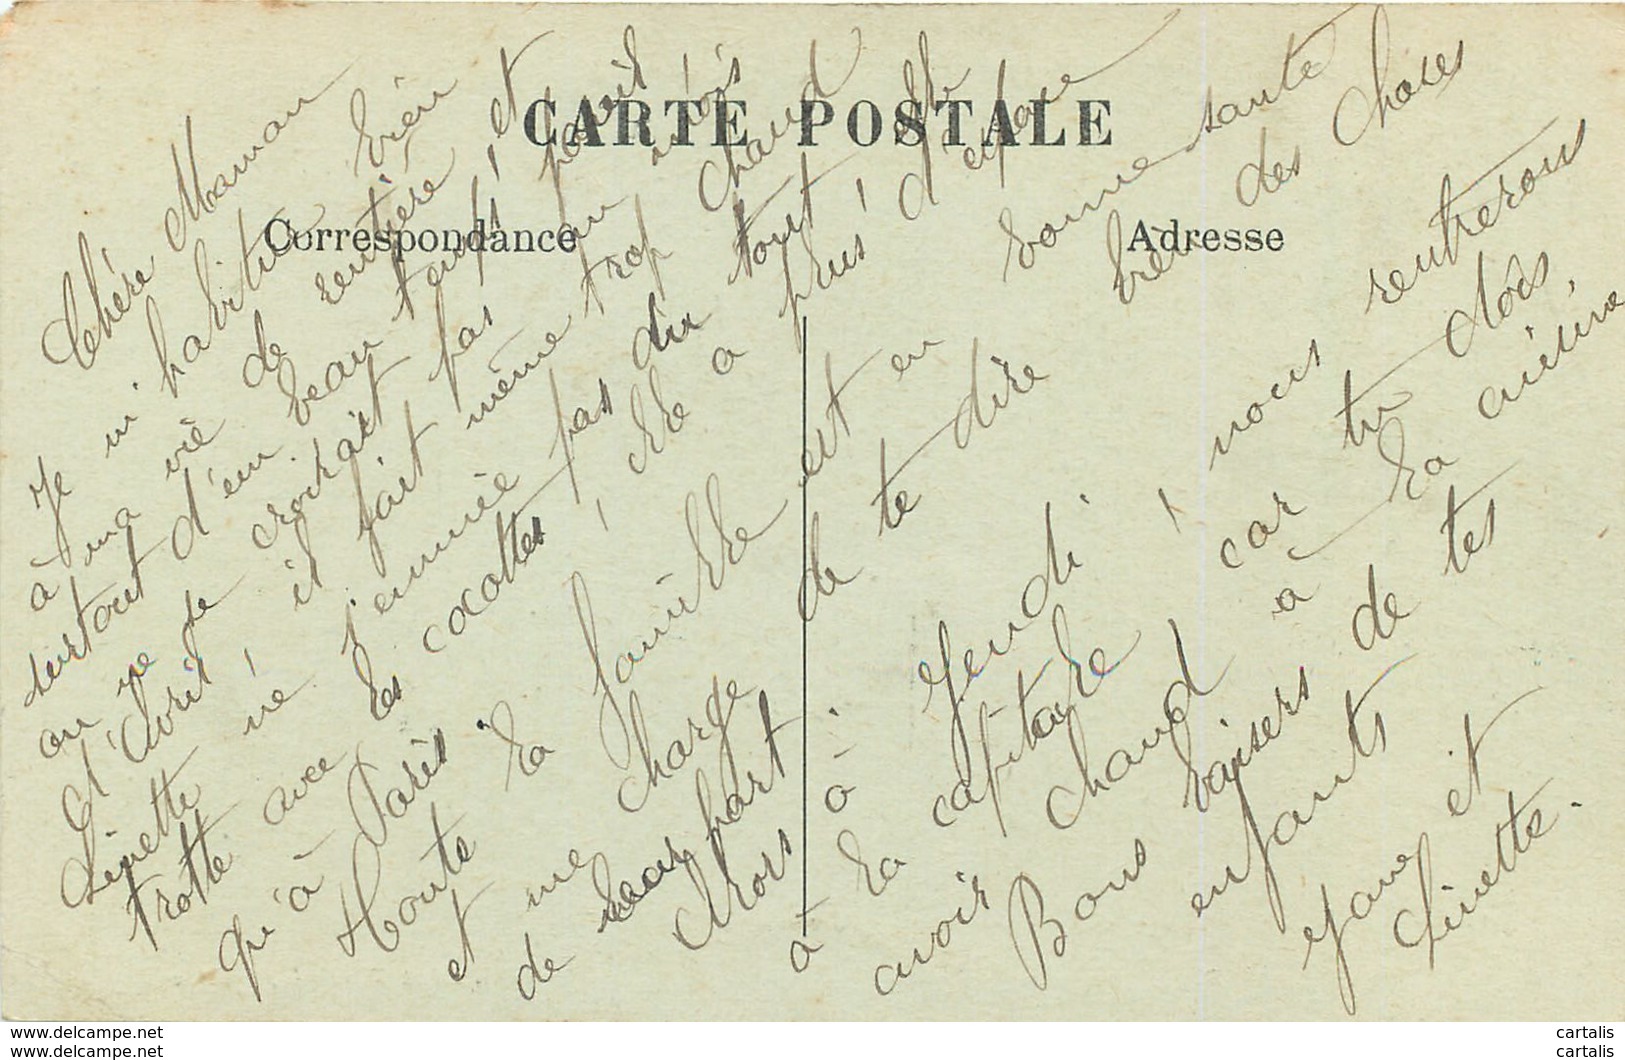 CARTE POSTALE
Correspondance
Adresse
Chère Maman
Je m'habitue bien
à ma vie de rentière, et
surtout d'un beau temps, et
on ne se croirait pas
d'Avril, il fait même trop chaud
Linette né j'ennuie pas du tout
trotte avec les cocottes, elle a plus d'espace
qu'à Paris.
Toute la famille est en bonne santé
et me charge de te dire bien des choses
de leur part
Alors à Jeudi, nous rentrerons
à la capitale car tu dois
avoir chaud à la cuisine,
Bons baisers de tes
enfants
Jane et
Linette.
www.delcampe.net
www.delcampe.net
cartalis
cartalis